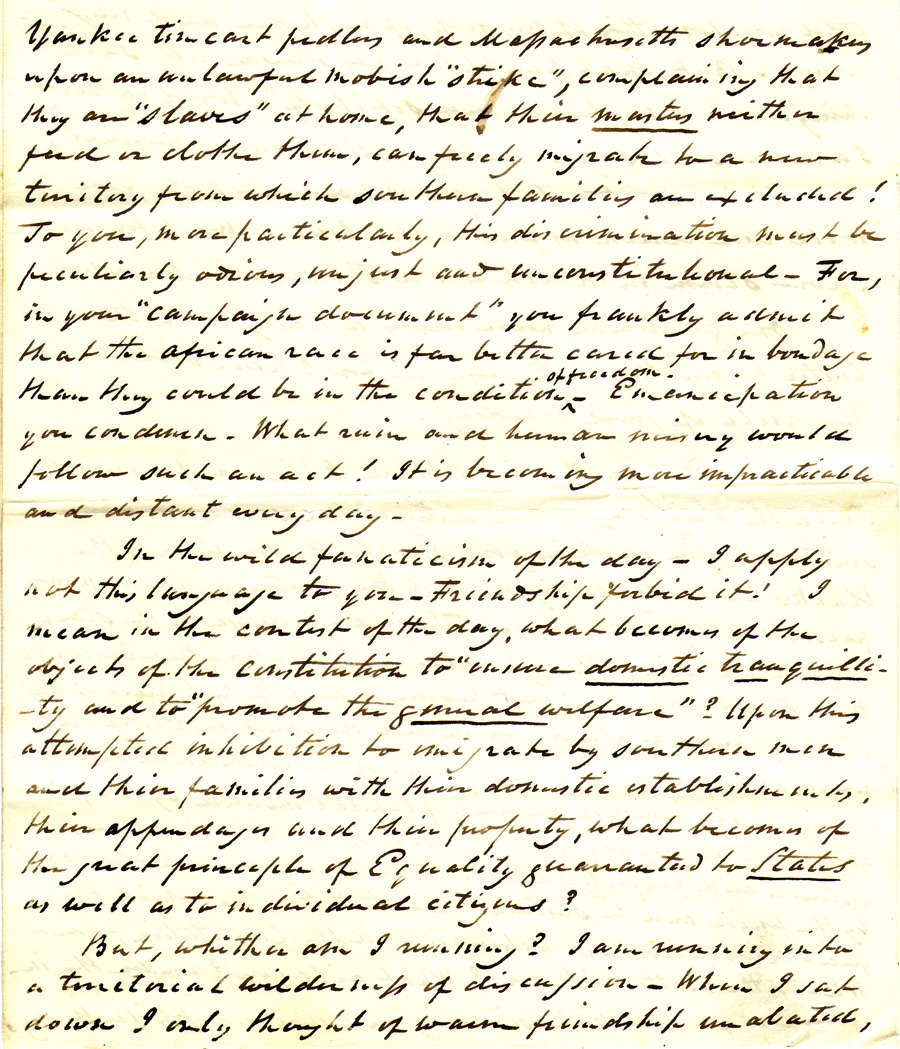 Yankee tin cart pedlars and Massachusetts shoemakers
upon an unlawful mobish "strike", complaining that
they are "slaves" at home, that their masters neither
feed or clothe them, can freely migrate to a new
territory from which southern families are excluded!
To you, more particularly, this discrimination must be
peculiarly odious, unjust and unconstitutional - For,
in your "campaign document" you frankly admit
that the african race is far better cared for in bondage
than they could be in the condition of freedom. - Emancipation
you condemn. - What ruin and human misery would
follow such an act! It is becoming more impracticable
and distant every day -
In the wild fanaticism of the day - I apply
not this language to you - Friendship forbid it! I
mean in the contest of the day, what becomes of the
objects of the Constitution to "ensure domestic tranquilli-
-ty and to "promote the general welfare"? Upon this
attempted inhibition to emigrate by southern men
and their families with their domestic establishments,
their appendages and their property, what becomes of
the great principle of Equality guaranteed to States
as well as to individual citizens?
But, whither am I running? I am running into
a territorial wilderness of discussion - When I sat
down I only thought of warm friendship unabated,